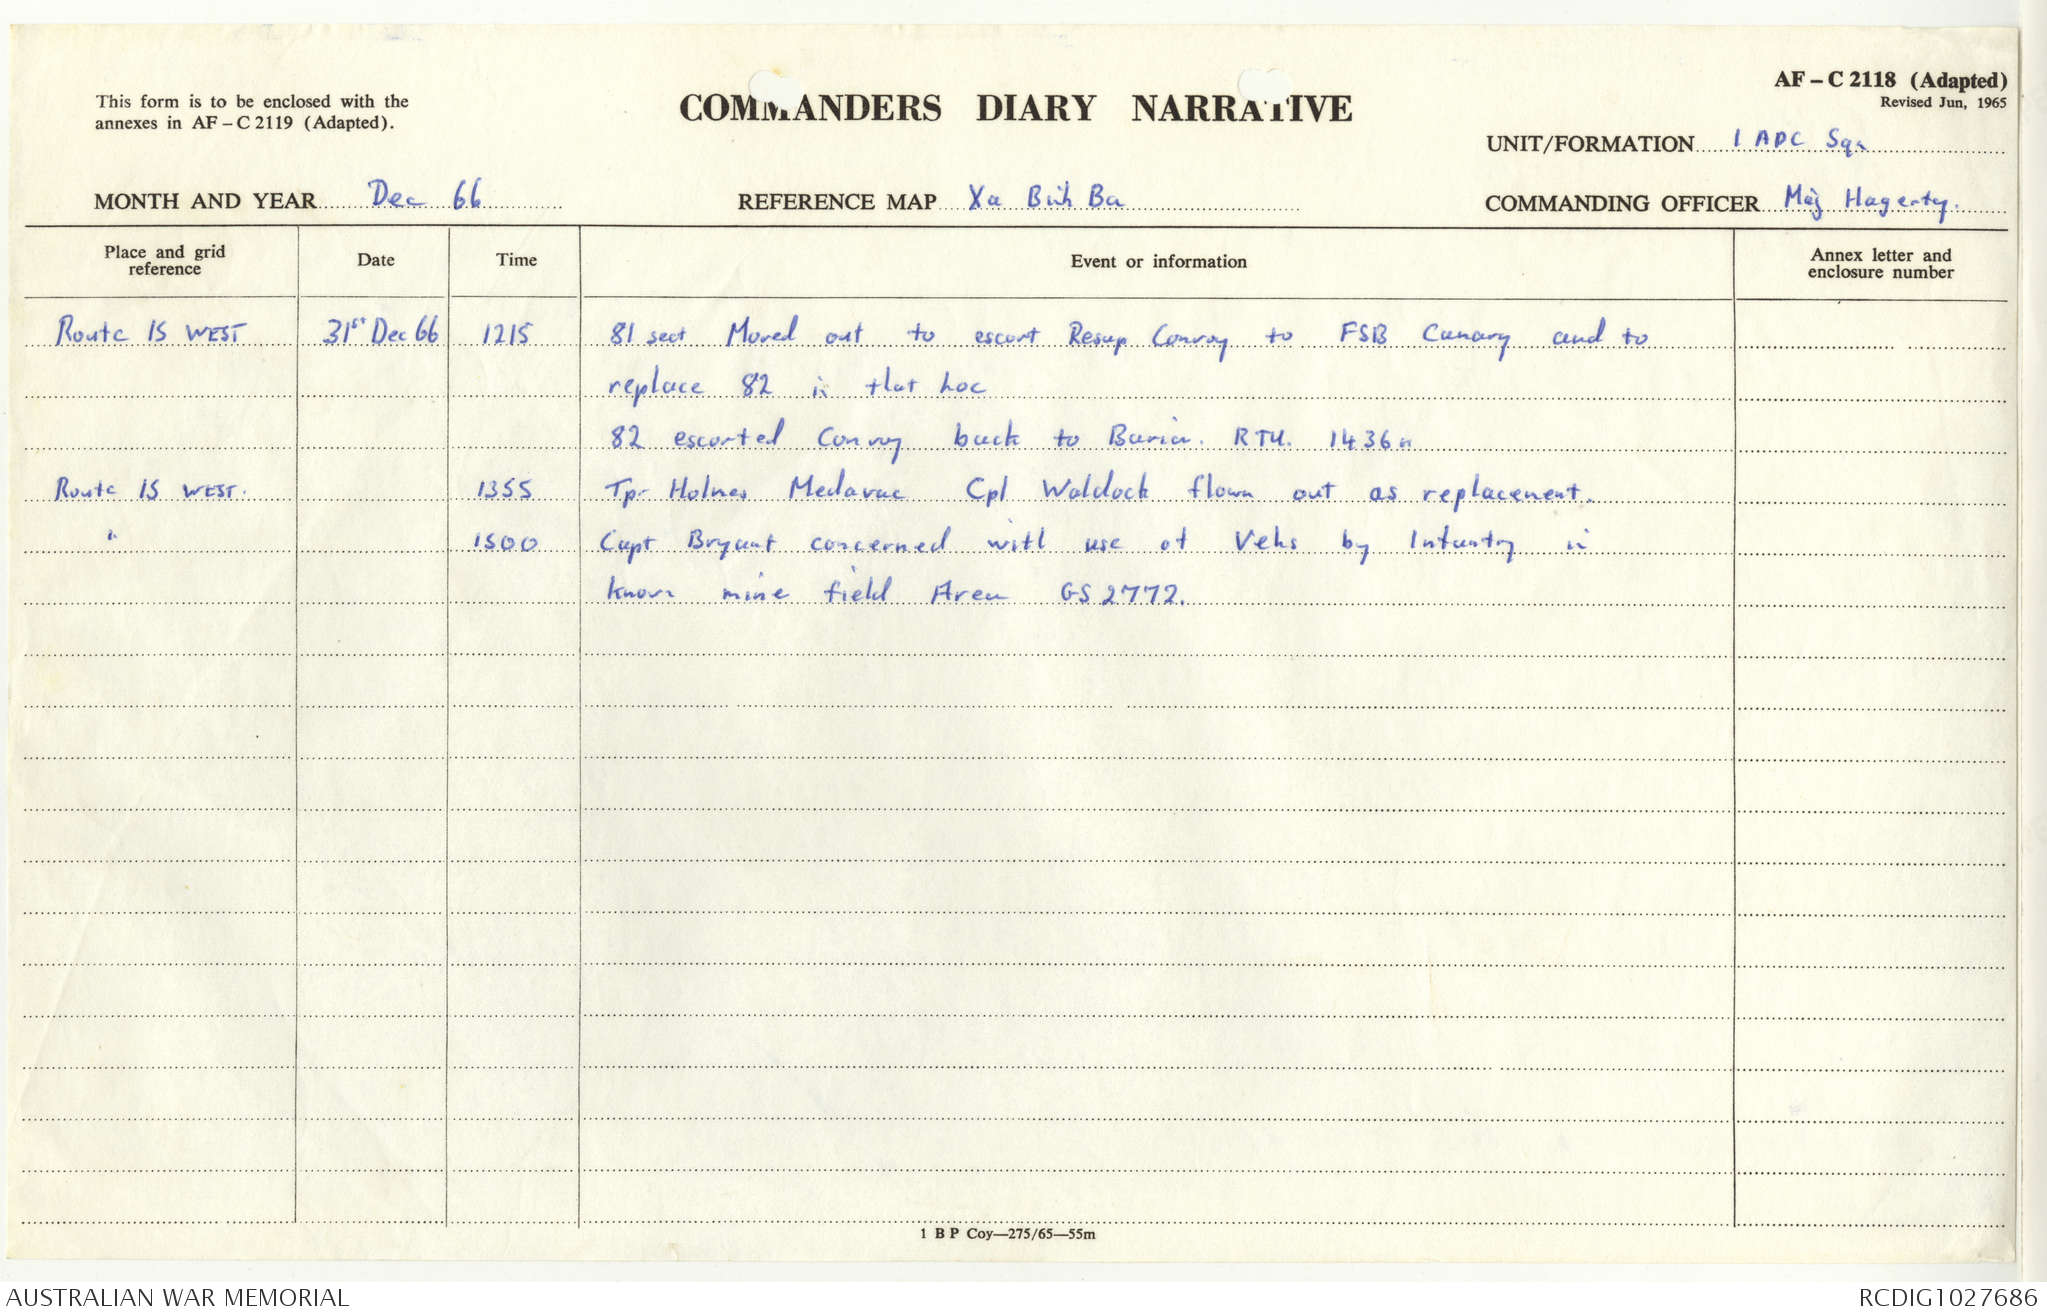 AF – C 2118 (Adapted)
Revised Jun, 1965
This form is to be enclosed with the
annexes in AF – C 2119 (Adapted).
COMMANDERS DIARY NARRATIVE
UNIT/FORMATION 1 APC Sqn
MONTH AND YEAR Dec 66
REFERENCE MAP Xa Binh Ba
COMMANDING OFFICER Maj Hagerty.
Place and grid reference Date Time Event or information Annex letter and enclosure number
Route 15 WEST 31st Dec 66 1215 81 sect Moved out to escort Resup Convoy to FSB Canary and to
replace 82 in that loc
82 escorted Convoy back to Baria. RTU. 1436 n
Route 15 WEST. 1355 Tpr Holmes Medavac Cpl Waldock flown out as replacement.
" 1500 Capt Bryant concerned with use of Vehs by Infantry in
known mine field Area GS 2772.
1 B P Coy—275/65—55m
AUSTRALIAN WAR MEMORIAL
RCDIG1027686